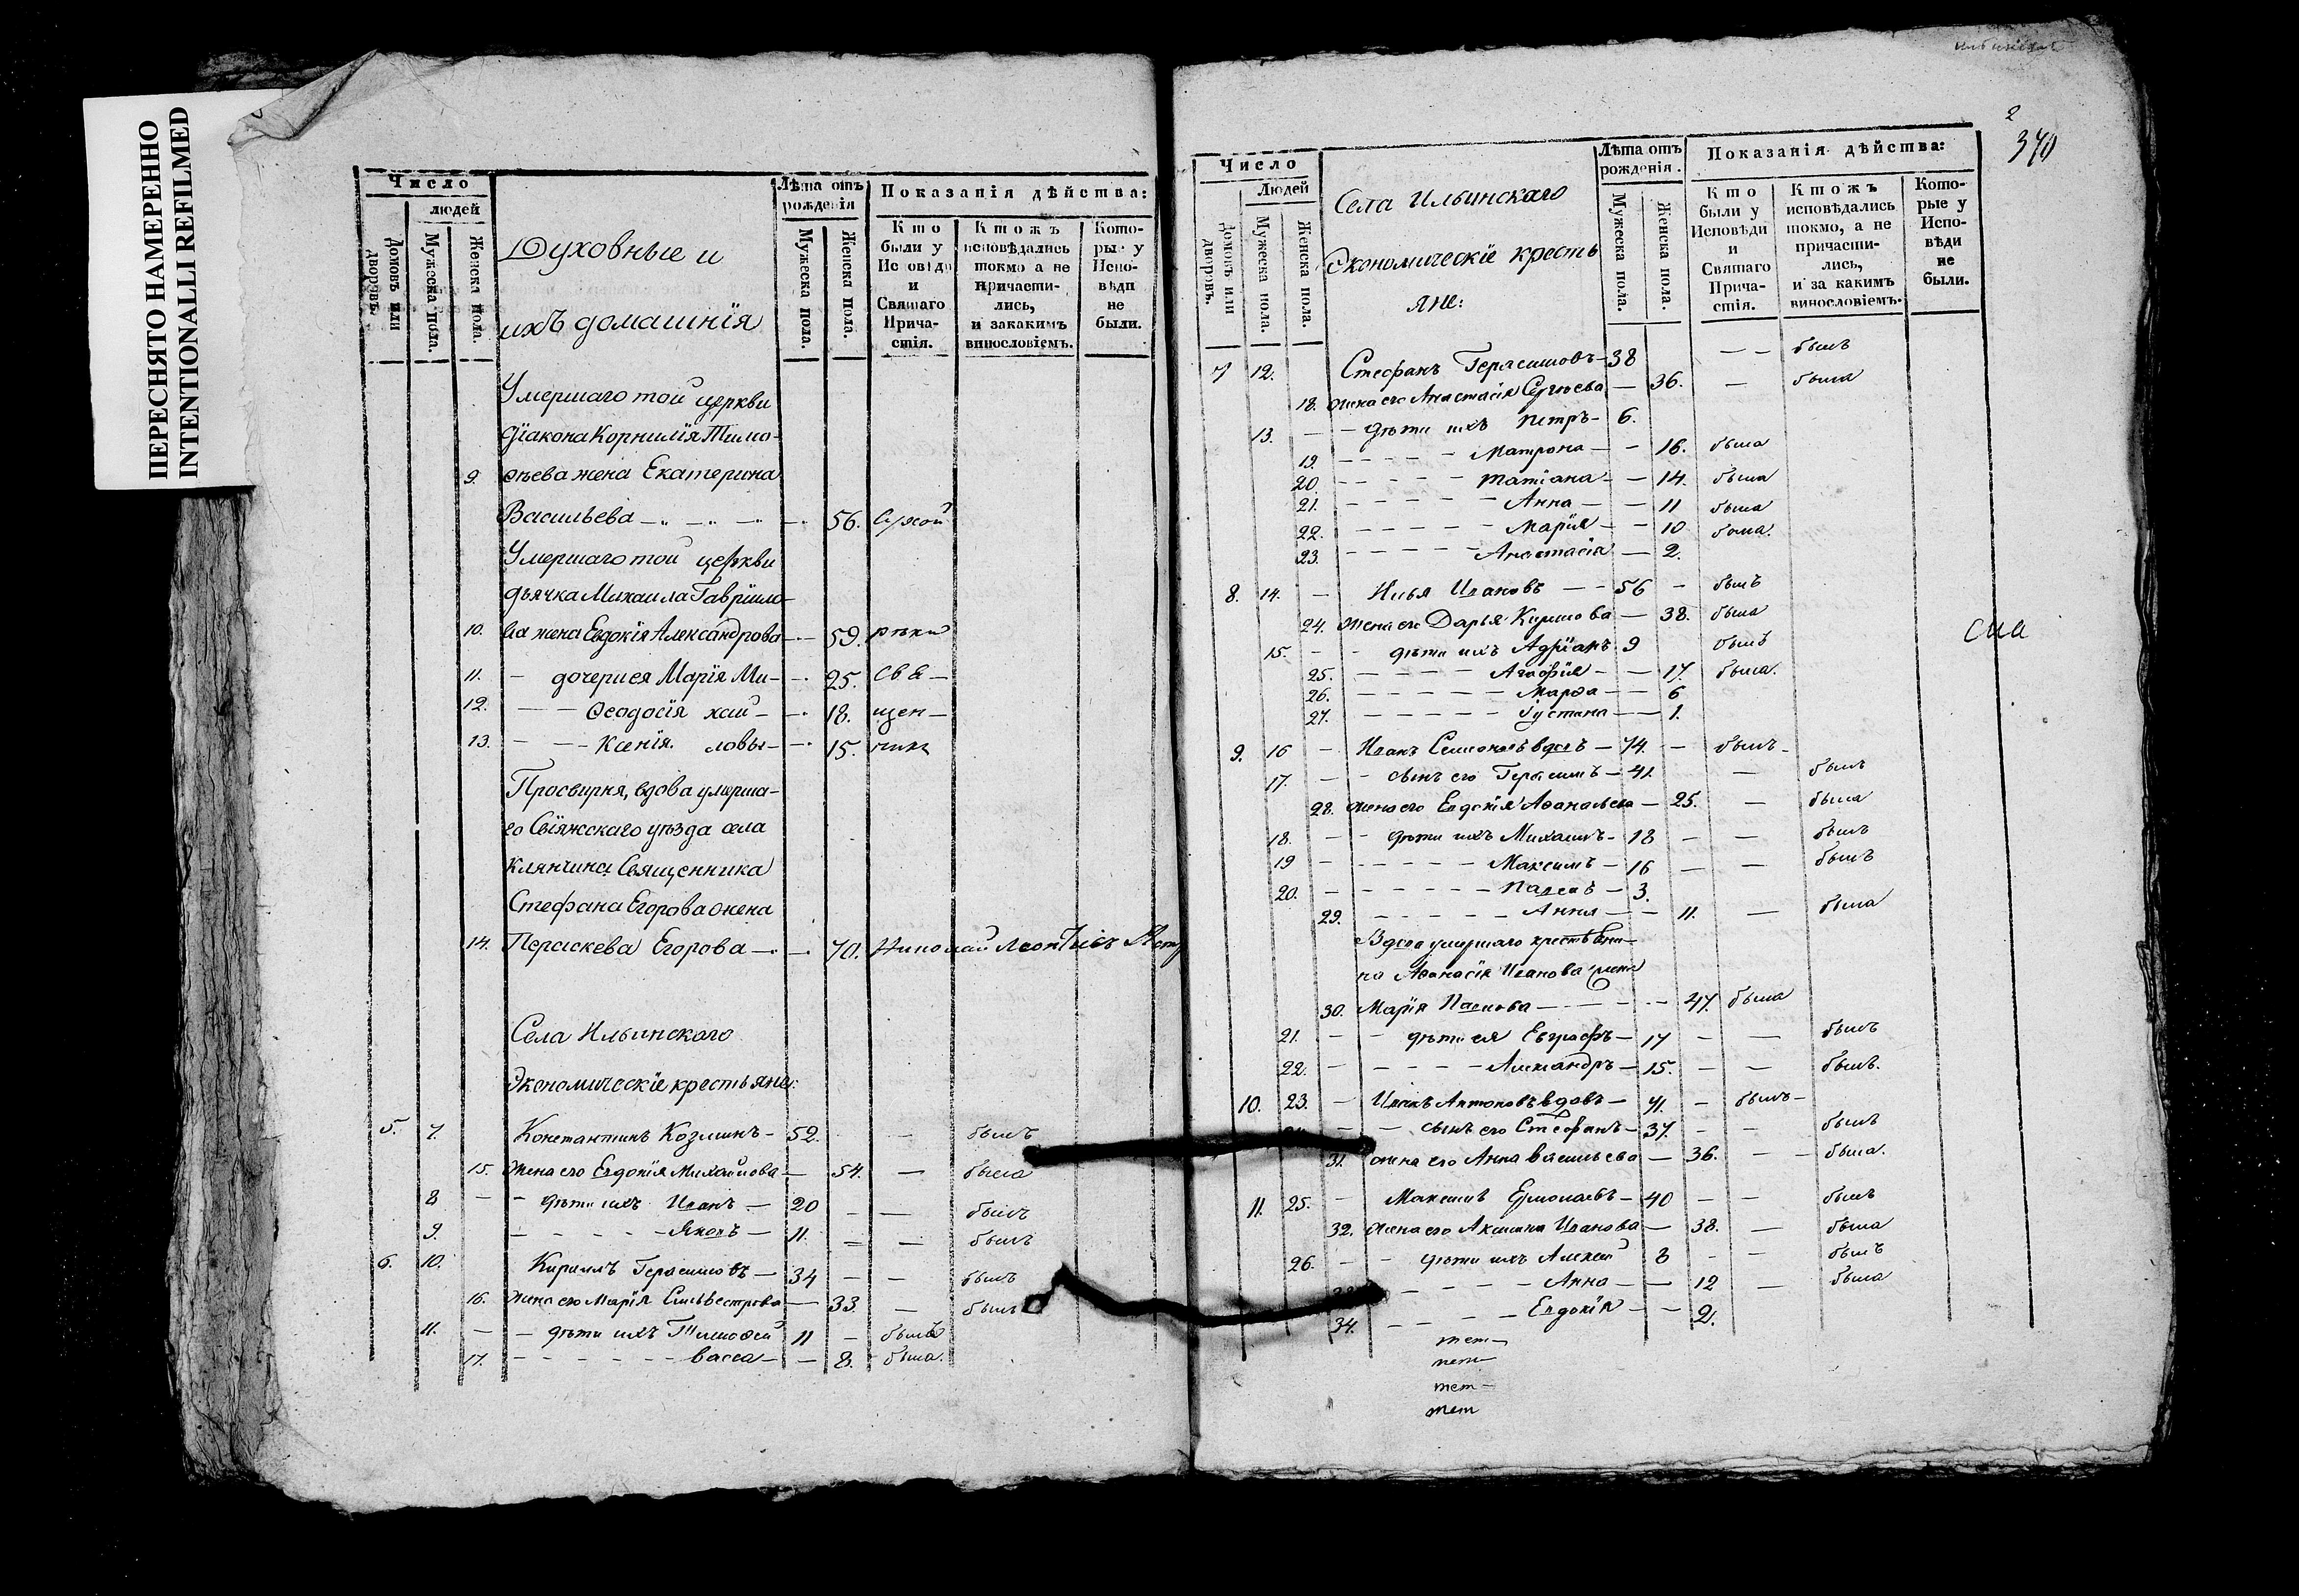 ПЕРЕСНЯТО НАМЕРЕННО
INTENTIONALLI REFILMED
Число
людей
Домовъ или дворовъ.
Мужеска пола.
Женска пола.
Духовные и
ихъ домашнїя
Лѣта отъ рожденія
Мужеска пола.
Женска пола.
Показанія дѣйства:
Кто были у Исповѣди и Святаго Прича-стія.
Ктожъ исповѣдались токмо а не причасти-лись, и закакимъ винословіемъ.
Кото-рые у Испо-вѣди не были.
Умершаго той церкви
діакона Корнилїя Тимо-
9. ѳеева жена Екатерина
Васильева 56. Сужой
Умершаго той церкви
дьячка Михаила Гаврїило-
10. ва жена Евдокїя Александрова 59. рѣки
11. дочери ея Марїя Ми- 25. Свя-
12. Ѳеодосїя хай- 18. щен-
13. Ксенїя. ловы- 15. никъ
Просвирня, вдова умерша-
го Свїяжскаго уѣзда села
Клянчина Священника
Стефана Егорова жена
14. Пераскева Егорова 70. Николай Леонтїевъ
Села Ильинскаго
Экономическїе крестьяне:
5. 7. Константинъ Козминъ 52. былъ
15. жена его Евдокїя Михайлова 54. была
8 дѣти ихъ Иванъ 20 былъ
9. Яковъ 11. былъ
6. 10. Кирилъ Герасимовъ 34 былъ
16. жена его Марїя Сильвестрова 33. была
11. дѣти ихъ Тимоѳей 11 былъ
17. Васса 8. была.
2
340
Число
Людей
Домовъ или дворовъ.
Мужеска пола.
Женска пола.
Села Ильинскаго
Экономическїе кресть
яне:
Лѣта отъ рожденія.
Мужеска пола.
Женска пола.
Показанія дѣйства:
Кто были у Исповѣди и Святаго Прича-стія.
Ктожъ исповѣдались токмо, а не причасти-лись, и за какимъ винословіемъ.
Кото-рые у Испо-вѣди не были.
7 12. Стефанъ Герасимовъ 38 былъ
18. жена его Анастасїя Сергѣева 36. была
13. дѣти ихъ Петръ 6.
19. Матрона 16. была
20. Татїана 14. была
21. Анна 11 была
22. Марїя 10 была.
23. Анастасїя 2.
8. 14. Илья Ивановъ 56 былъ
24. жена его Дарья Кирилова 38. была
15. дѣти ихъ Адрїанъ 9 былъ
25. Агафїя 17. была.
26. Марѳа 6
27. Іустина 1.
9. 16 Иванъ Семеновъ вдовъ 74. былъ
17. сынъ его Герасимъ 41. былъ
28. жена его Евдокїя Аѳанасьева 25. была
18. дѣти ихъ Михаилъ 18 былъ
19 Максимъ 16 былъ
20. Павелъ 3.
29. Анна 11. была
Вдова умершаго крестьяни-
на Аѳанасїя Иванова жена
30. Марїя Павлова 47. была
21. дѣти ея Евграфъ 17 былъ
22. Александръ 15. былъ.
10. 23. Иванъ Антоновъ вдовъ 71. былъ
сынъ его Стефанъ 37. былъ
31. жена его Анна Васильева 36. была.
11. 25. Максимъ Ермолаевъ 40 былъ
32. жена его Аксинья Иванова 38. была
26. дѣти ихъ Алексѣй 8 былъ
Анна 12 была
34. Евдокїя 2.